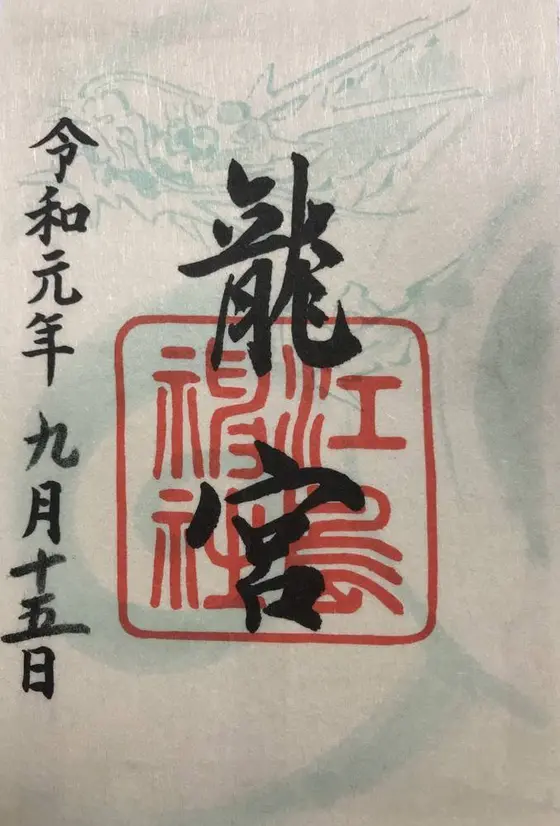 龍宮
江島
神社
令和元年 九月十五日